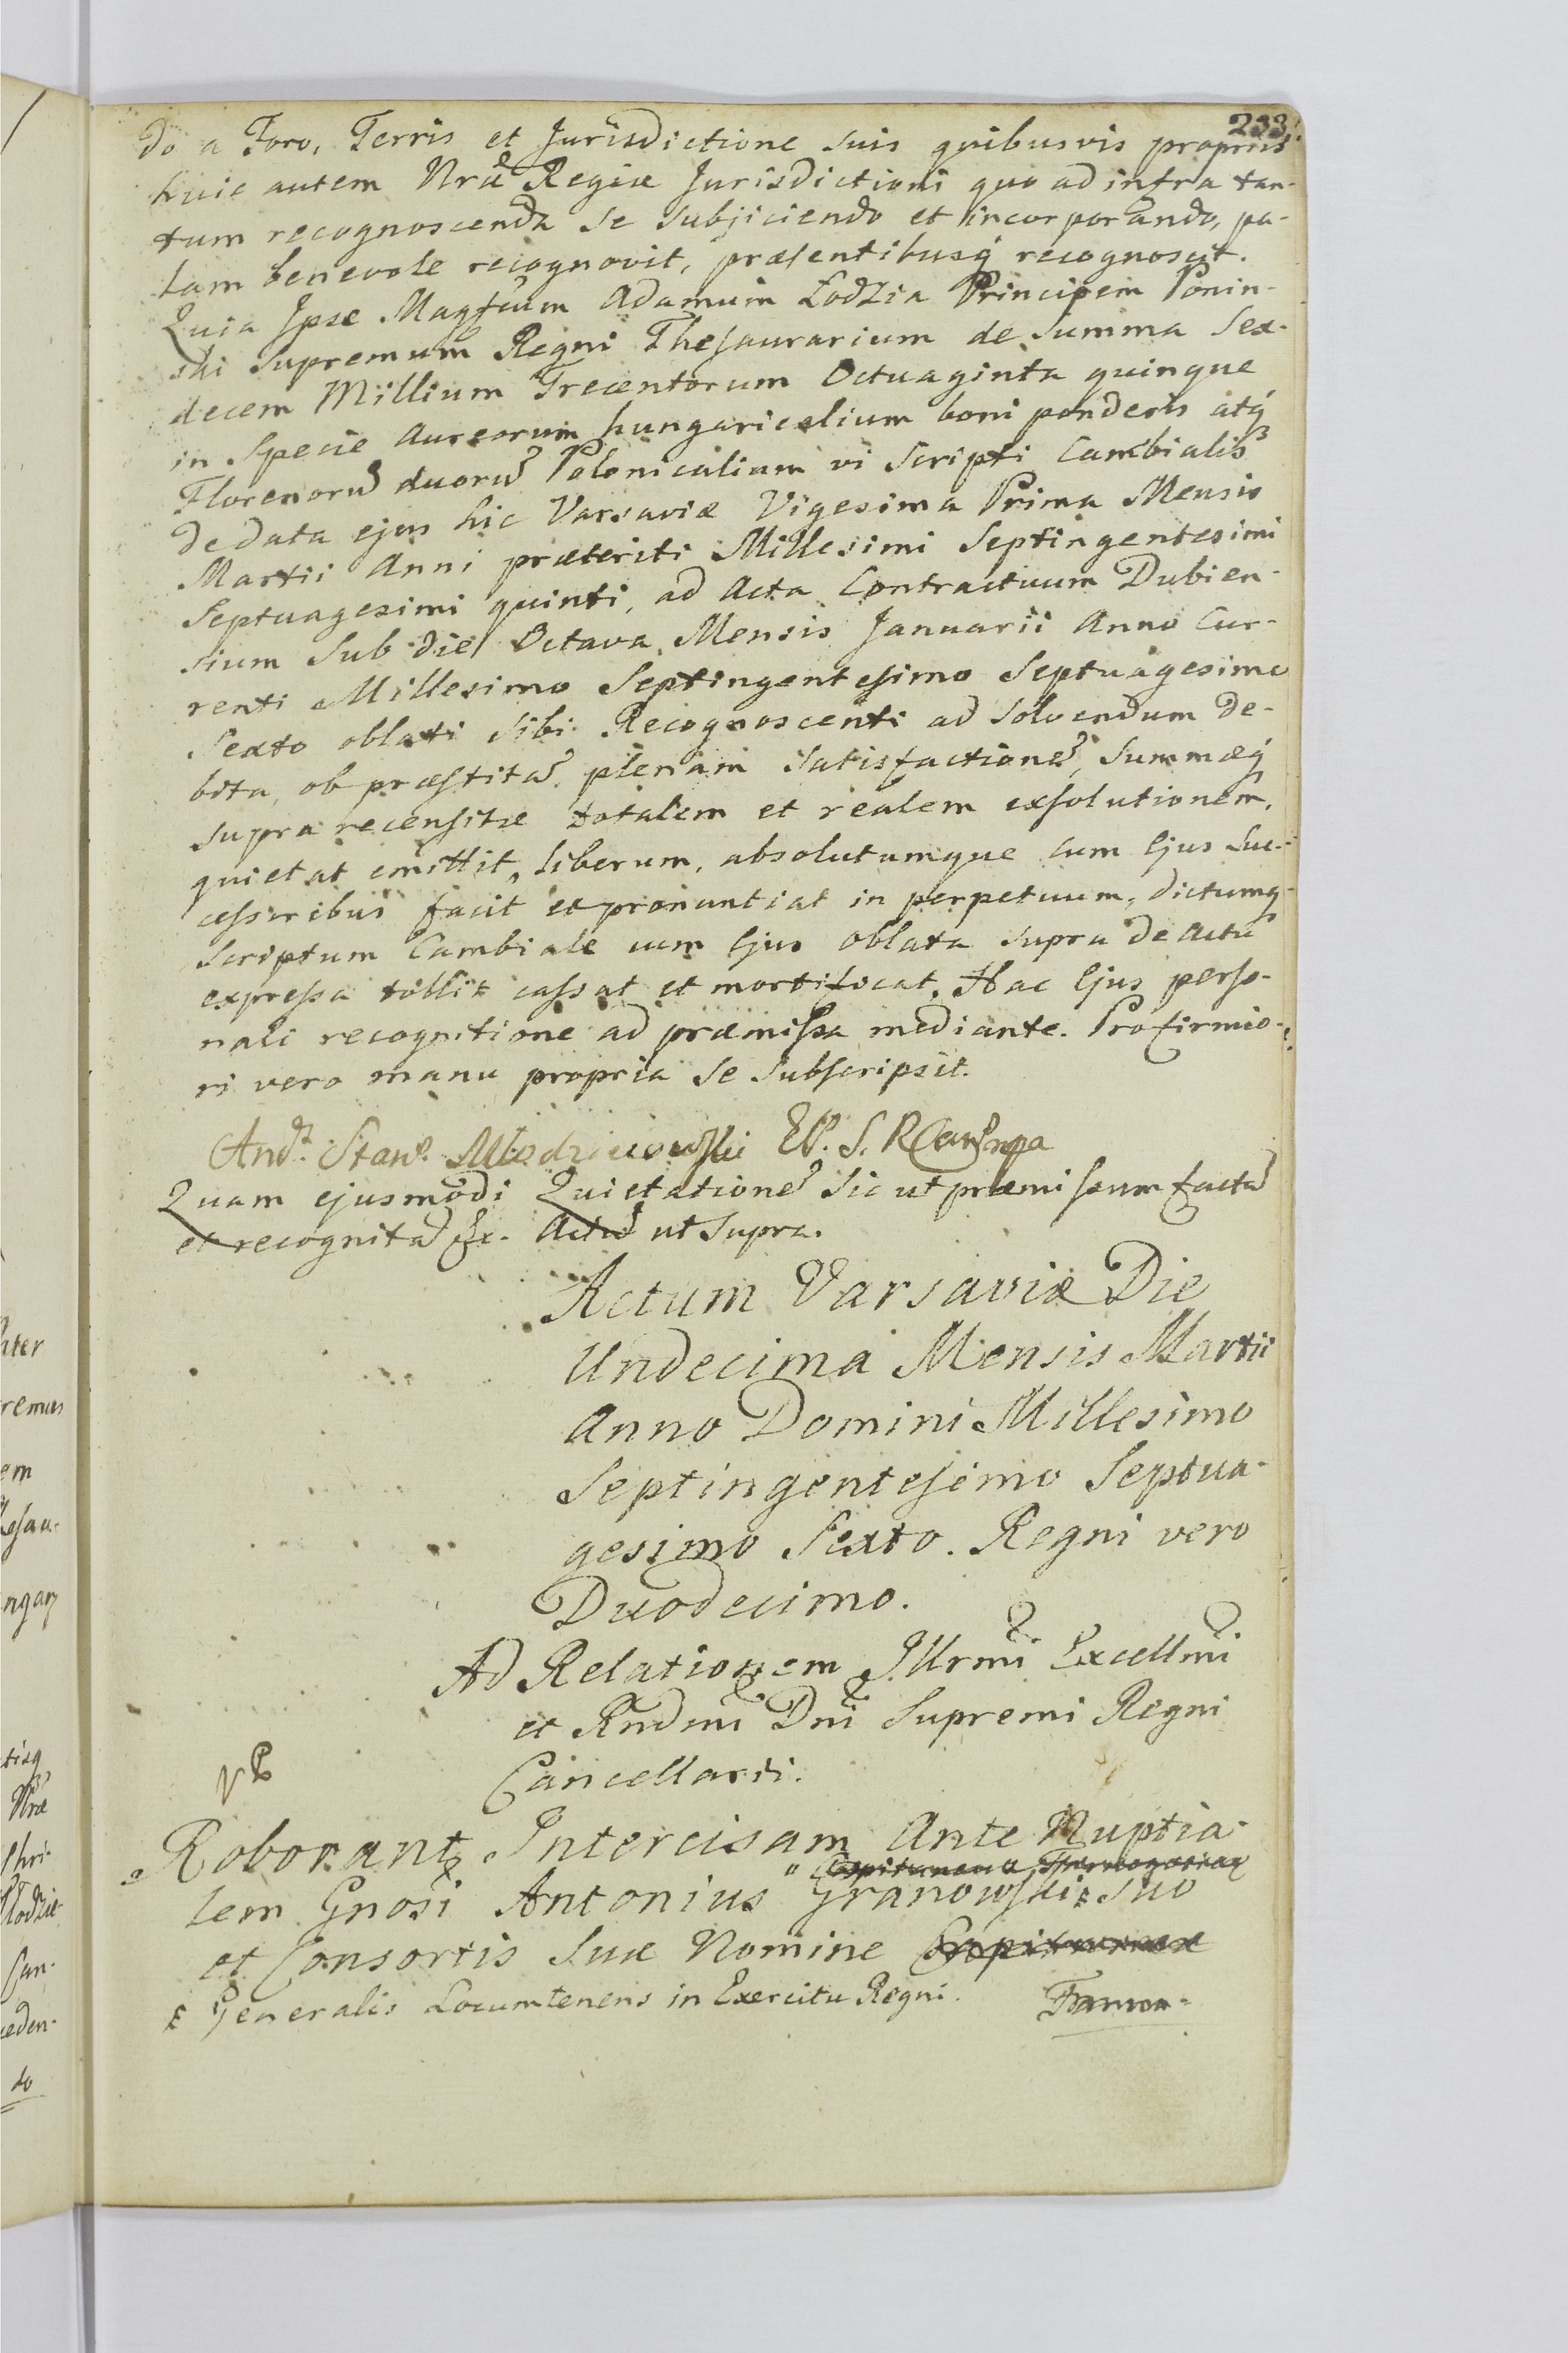 233.
do a Foro, Terris et Jurisdictione suis quibusvis propriis
huic autem Nrae Regiae Jurisdictioni quo ad infra tan-
tum recognoscenda se subjiciendo et incorporando, pa-
lam benevole recognovit, praesentibusq recognoscit.
Quia Ipse Magfcum Adamum Łodzia Principem Ponin-
ski Supremum Regni Thesaurarium de Summa Sex-
decem Millium Trecentorum Octuaginta quinque
in Specie Aureorum hungaricalium boni ponderis atq
Florenoru duoru Polonicalium vi Scripti Cambialis
de data ejus hic Varsaviae Vigesima Prima Mensis
Martii Anni praeteriti Millesimi Septingentesimi
Septuagesimi quinti, ad Acta Contractuum Dubien-
sium Sub die Octava Mensis Januarii Anno Cur-
renti Millesimo Septingentesimo Septuagesimo
Sexto oblati sibi Recognoscenti ad solvendum de-
bita, ob praestita plenam satisfactione, Summaeq
supra recensitae totalem et realem exsolutionem,
quietat emittit, liberum, absolutumque cum Ejus Suc-
cessoribus facit et pronuntiat in perpetuum, dictumq
Scriptum Cambiale cum Ejus oblata supra de actu
expressa tollit cassat et mortificat. Hac Ejus perso-
nali recognitione ad praemissa mediante. Pro firmio-
ri vero manu propria se subscripsit.
And. Stan. Młodzieiowski EP. S. R
Quam ejusmodi Quietatione sic ut praemissum facta
et recognita &c. Actu ut supra.
Actum Varsaviae Die
Undecima Mensis Martii
Anno Domini Millesimo
Septingentesimo Septua-
gesimo Sexto. Regni vero
Duodecimo.
Ad Relationem Illrmi Excellmi
et Rndmi Dni Supremi Regni
Cancellarii.
Roborant Intercisam Ante Nuptia-
lem Gnosi Antonius Granowski suo
et Consortis Suae Nomine
Generalis Locumtenens in Exercitu Regni.